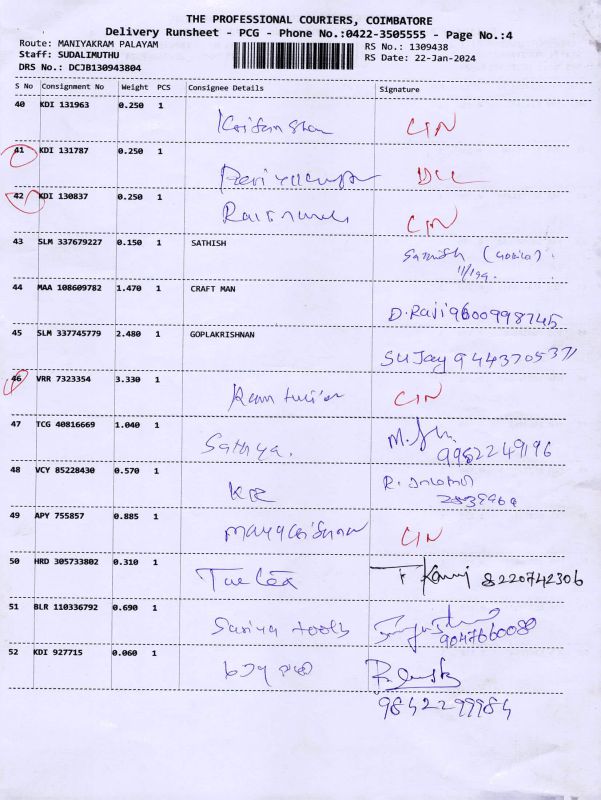 THE PROFESSIONAL COURIERS, COIMBATORE
Delivery Runsheet - PCG - Phone No.:0422-3505555 - Page No.:4
Route: MANIYAKRAM PALAYAM RS No.: 1309438
Staff: SUDALIMUTHU RS Date: 22-Jan-2024
DRS No.: DCJB130943804
S No Consignment No Weight PCS Consignee Details Signature
40 KDI 131963 0.250 1 CIN
41 KDI 131787 0.250 1
42 KDI 130837 0.250 1 CIN
43 SLM 337679227 0.150 1 SATHISH Sathish
11/199.
44 MAA 108609782 1.470 1 CRAFT MAN
D. Raji 9600998745
45 SLM 337745779 2.480 1 GOPLAKRISHNAN
SUJay 9443705371
46 VRR 7323354 3.330 1 CIN
47 TCG 40816669 1.040 1 Sathya.
9952249196
48 VCY 85228430 0.570 1
49 APY 755857 0.885 1 CIN
50 HRD 305733802 0.310 1 8220742306
51 BLR 110336792 0.690 1 Sariya tools
9047660080
52 KDI 927715 0.060 1
9842299984